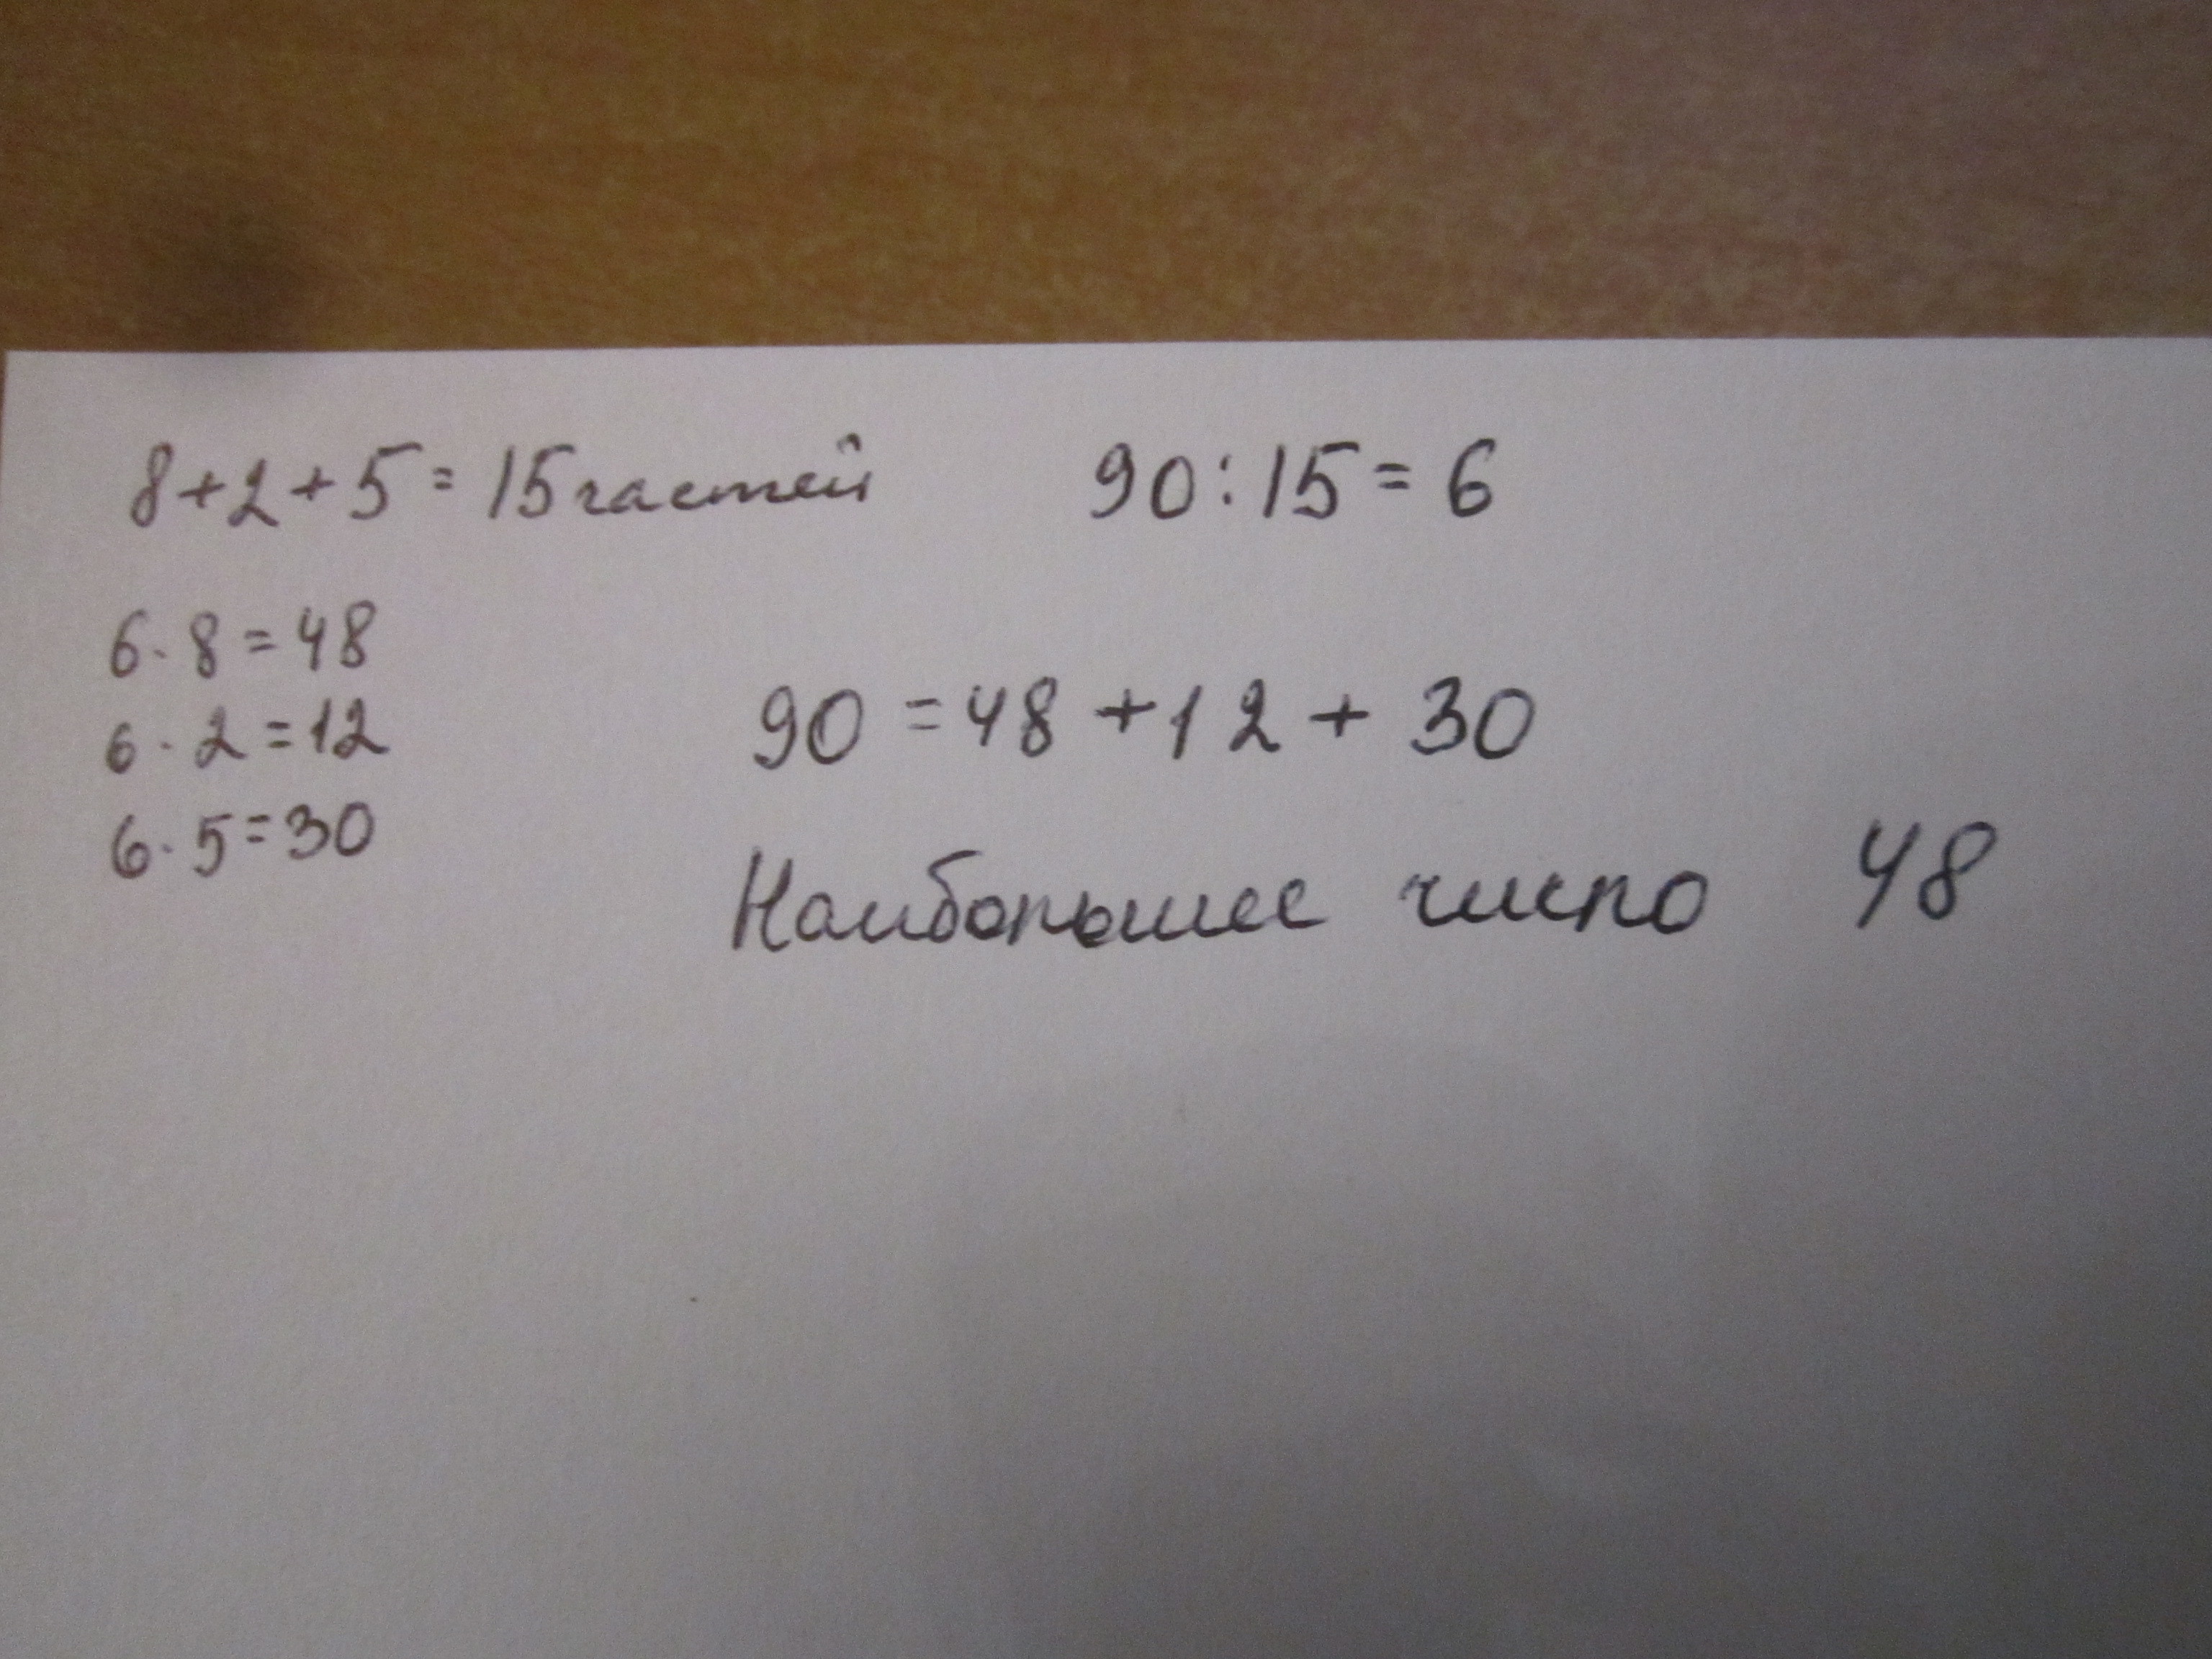 8+2+5=15частей 90:15=6
6·8=48
6·2=12
6·5=30
90=48+12+30
Наибольшее число 48